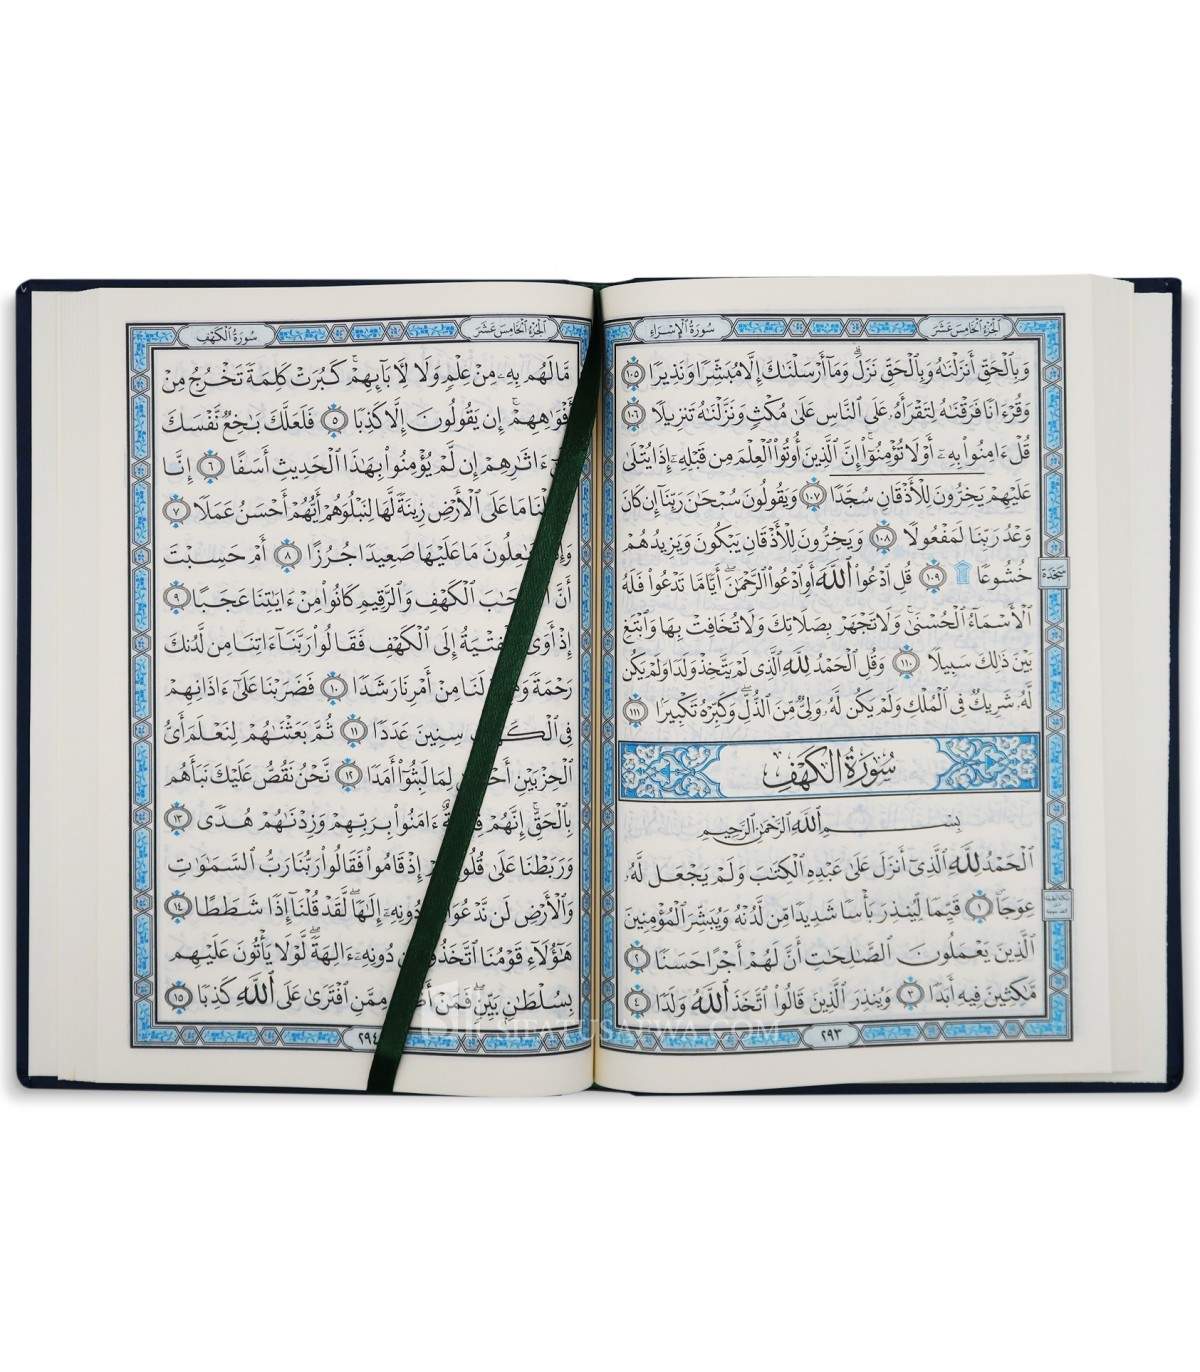 سُورَةُ الْإِسْرَاءِ
الجُزْءُ الخَامِسَ عَشَرَ
وَبِالْحَقِّ أَنزَلْنَٰهُ وَبِالْحَقِّ نَزَلَ ۗ وَمَا أَرْسَلْنَٰكَ إِلَّا مُبَشِّرًا وَنَذِيرًا ١٠٥
وَقُرْءَانًا فَرَقْنَٰهُ لِتَقْرَأَهُۥ عَلَى النَّاسِ عَلَىٰ مُكْثٍ وَنَزَّلْنَٰهُ تَنزِيلًا ١٠٦
قُلْ ءَامِنُوا بِهِۦٓ أَوْ لَا تُؤْمِنُوٓا ۚ إِنَّ الَّذِينَ أُوتُوا الْعِلْمَ مِن قَبْلِهِۦٓ إِذَا يُتْلَىٰ
عَلَيْهِمْ يَخِرُّونَ لِلْأَذْقَانِ سُجَّدًا ١٠٧ وَيَقُولُونَ سُبْحَٰنَ رَبِّنَآ إِن كَانَ
وَعْدُ رَبِّنَا لَمَفْعُولًا ١٠٨ وَيَخِرُّونَ لِلْأَذْقَانِ يَبْكُونَ وَيَزِيدُهُمْ
خُشُوعًا ۩ ١٠٩ قُلِ ادْعُوا اللَّهَ أَوِ ادْعُوا الرَّحْمَٰنَ ۖ أَيًّا مَّا تَدْعُوا فَلَهُ
سَجْدَة
الْأَسْمَآءُ الْحُسْنَىٰ ۚ وَلَا تَجْهَرْ بِصَلَاتِكَ وَلَا تُخَافِتْ بِهَا وَابْتَغِ
بَيْنَ ذَٰلِكَ سَبِيلًا ١١٠ وَقُلِ الْحَمْدُ لِلَّهِ الَّذِي لَمْ يَتَّخِذْ وَلَدًا وَلَمْ يَكُن
لَّهُۥ شَرِيكٌ فِي الْمُلْكِ وَلَمْ يَكُن لَّهُۥ وَلِيٌّ مِّنَ الذُّلِّ ۖ وَكَبِّرْهُ تَكْبِيرًا ١١١
سُورَةُ الْكَهْفِ
بِسْمِ اللَّهِ الرَّحْمَٰنِ الرَّحِيمِ
الْحَمْدُ لِلَّهِ الَّذِيٓ أَنزَلَ عَلَىٰ عَبْدِهِ الْكِتَٰبَ وَلَمْ يَجْعَل لَّهُۥ
عِوَجًا ۜ ١ قَيِّمًا لِّيُنذِرَ بَأْسًا شَدِيدًا مِّن لَّدُنْهُ وَيُبَشِّرَ الْمُؤْمِنِينَ
الَّذِينَ يَعْمَلُونَ الصَّٰلِحَٰتِ أَنَّ لَهُمْ أَجْرًا حَسَنًا ٢
مَّٰكِثِينَ فِيهِ أَبَدًا ٣ وَيُنذِرَ الَّذِينَ قَالُوا اتَّخَذَ اللَّهُ وَلَدًا ٤
٢٩٣
الجُزْءُ الخَامِسَ عَشَرَ
سُورَةُ الْكَهْفِ
مَّا لَهُم بِهِۦ مِنْ عِلْمٍ وَلَا لِأَبَآئِهِمْ ۚ كَبُرَتْ كَلِمَةً تَخْرُجُ مِنْ
أَفْوَٰهِهِمْ ۚ إِن يَقُولُونَ إِلَّا كَذِبًا ٥ فَلَعَلَّكَ بَٰخِعٌ نَّفْسَكَ
ءَاثَٰرِهِمْ إِن لَّمْ يُؤْمِنُوا بِهَٰذَا الْحَدِيثِ أَسَفًا ٦ إِنَّا
مَا عَلَى الْأَرْضِ زِينَةً لَّهَا لِنَبْلُوَهُمْ أَيُّهُمْ أَحْسَنُ عَمَلًا ٧
مَا عَلَيْهَا صَعِيدًا جُرُزًا ٨ أَمْ حَسِبْتَ
أَنَّ الْكَهْفِ وَالرَّقِيمِ كَانُوا مِنْ ءَايَٰتِنَا عَجَبًا ٩
إِذْ أَوَى إِلَى الْكَهْفِ فَقَالُوا رَبَّنَآ ءَاتِنَا مِن لَّدُنكَ
رَحْمَةً لَنَا مِنْ أَمْرِنَا رَشَدًا ١٠ فَضَرَبْنَا عَلَىٰٓ ءَاذَانِهِمْ
فِي سِنِينَ عَدَدًا ١١ ثُمَّ بَعَثْنَٰهُمْ لِنَعْلَمَ أَيُّ
الْحِزْبَيْنِ لِمَا لَبِثُوٓا أَمَدًا ١٢ نَّحْنُ نَقُصُّ عَلَيْكَ نَبَأَهُم
بِالْحَقِّ ۚ إِنَّهُمْ ءَامَنُوا بِرَبِّهِمْ وَزِدْنَٰهُمْ هُدًى ١٣
وَرَبَطْنَا عَلَىٰ إِذْ قَامُوا فَقَالُوا رَبُّنَا رَبُّ السَّمَٰوَٰتِ
وَالْأَرْضِ لَن نَّدْعُوَا دُونِهِۦٓ إِلَٰهًا ۖ لَّقَدْ قُلْنَآ إِذًا شَطَطًا ١٤
هَٰٓؤُلَآءِ قَوْمُنَا اتَّخَذُوا دُونِهِۦٓ ءَالِهَةً ۖ لَّوْلَا يَأْتُونَ عَلَيْهِم
بِسُلْطَٰنٍ بَيِّنٍ ۖ فَمَنْ مِمَّنِ افْتَرَىٰ عَلَى اللَّهِ كَذِبًا ١٥
٢٩٤
SIFATUSAFWA.COM